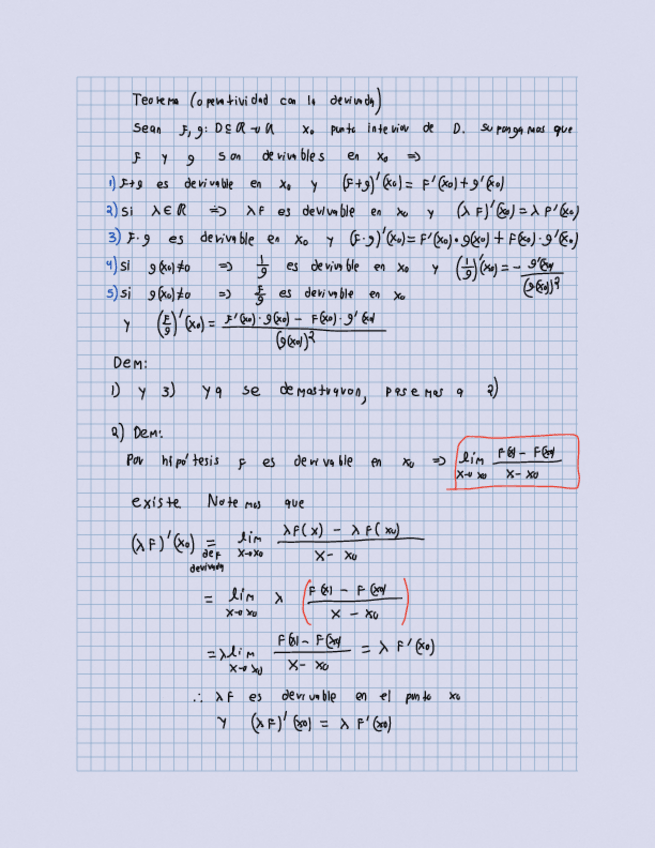 Teorema (operatividad con la derivada)
Sean f, g: D⊆ℝ→ℝ x₀ punto interior de D. Supongamos que
f y g son derivables en x₀ =>
1) f+g es derivable en x₀ y (f+g)'(x₀) = f'(x₀)+g'(x₀)
2) Si λ∈ℝ => λf es derivable en x₀ y (λf)'(x₀) = λf'(x₀)
3) f·g es derivable en x₀ y (f·g)'(x₀) = f'(x₀)·g(x₀) + f(x₀)·g'(x₀)
4) Si g(x₀)≠0 => 1/g es derivable en x₀ y (1/g)'(x₀) = - g'(x₀)/(g(x₀))²
5) Si g(x₀)≠0 => f/g es derivable en x₀
y (f/g)'(x₀) = f'(x₀)·g(x₀) - f(x₀)·g'(x₀)/(g(x₀))²
Dem:
1) y 3) ya se demostraron, pasemos a 2)
2) Dem:
Por hipótesis f es derivable en x₀ => lim x→x₀ f(x) - f(x₀)/x - x₀
existe. Notemos que
(λf)'(x₀) = def derivada lim x→x₀ λf(x) - λf(x₀)/x - x₀
= lim x→x₀ λ (f(x) - f(x₀)/x - x₀)
= λ lim x→x₀ f(x) - f(x₀)/x - x₀ = λ f'(x₀)
∴ λf es derivable en el punto x₀
y (λf)'(x₀) = λ f'(x₀)